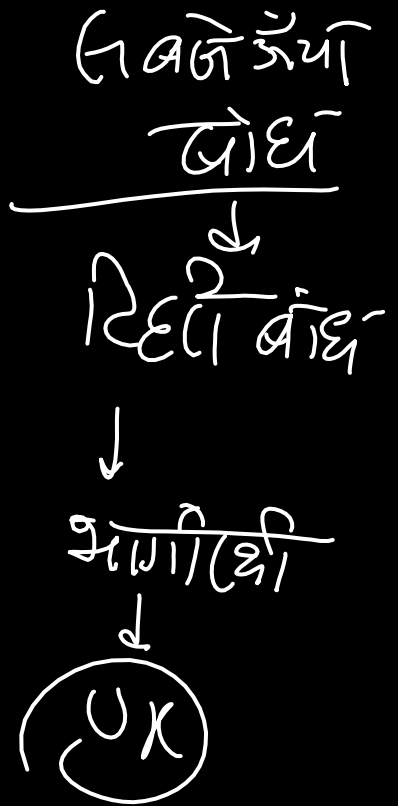 सबसे ऊँचा
बाँध
↓
टिहरी बाँध
↓
भागीरथी
↓
UK